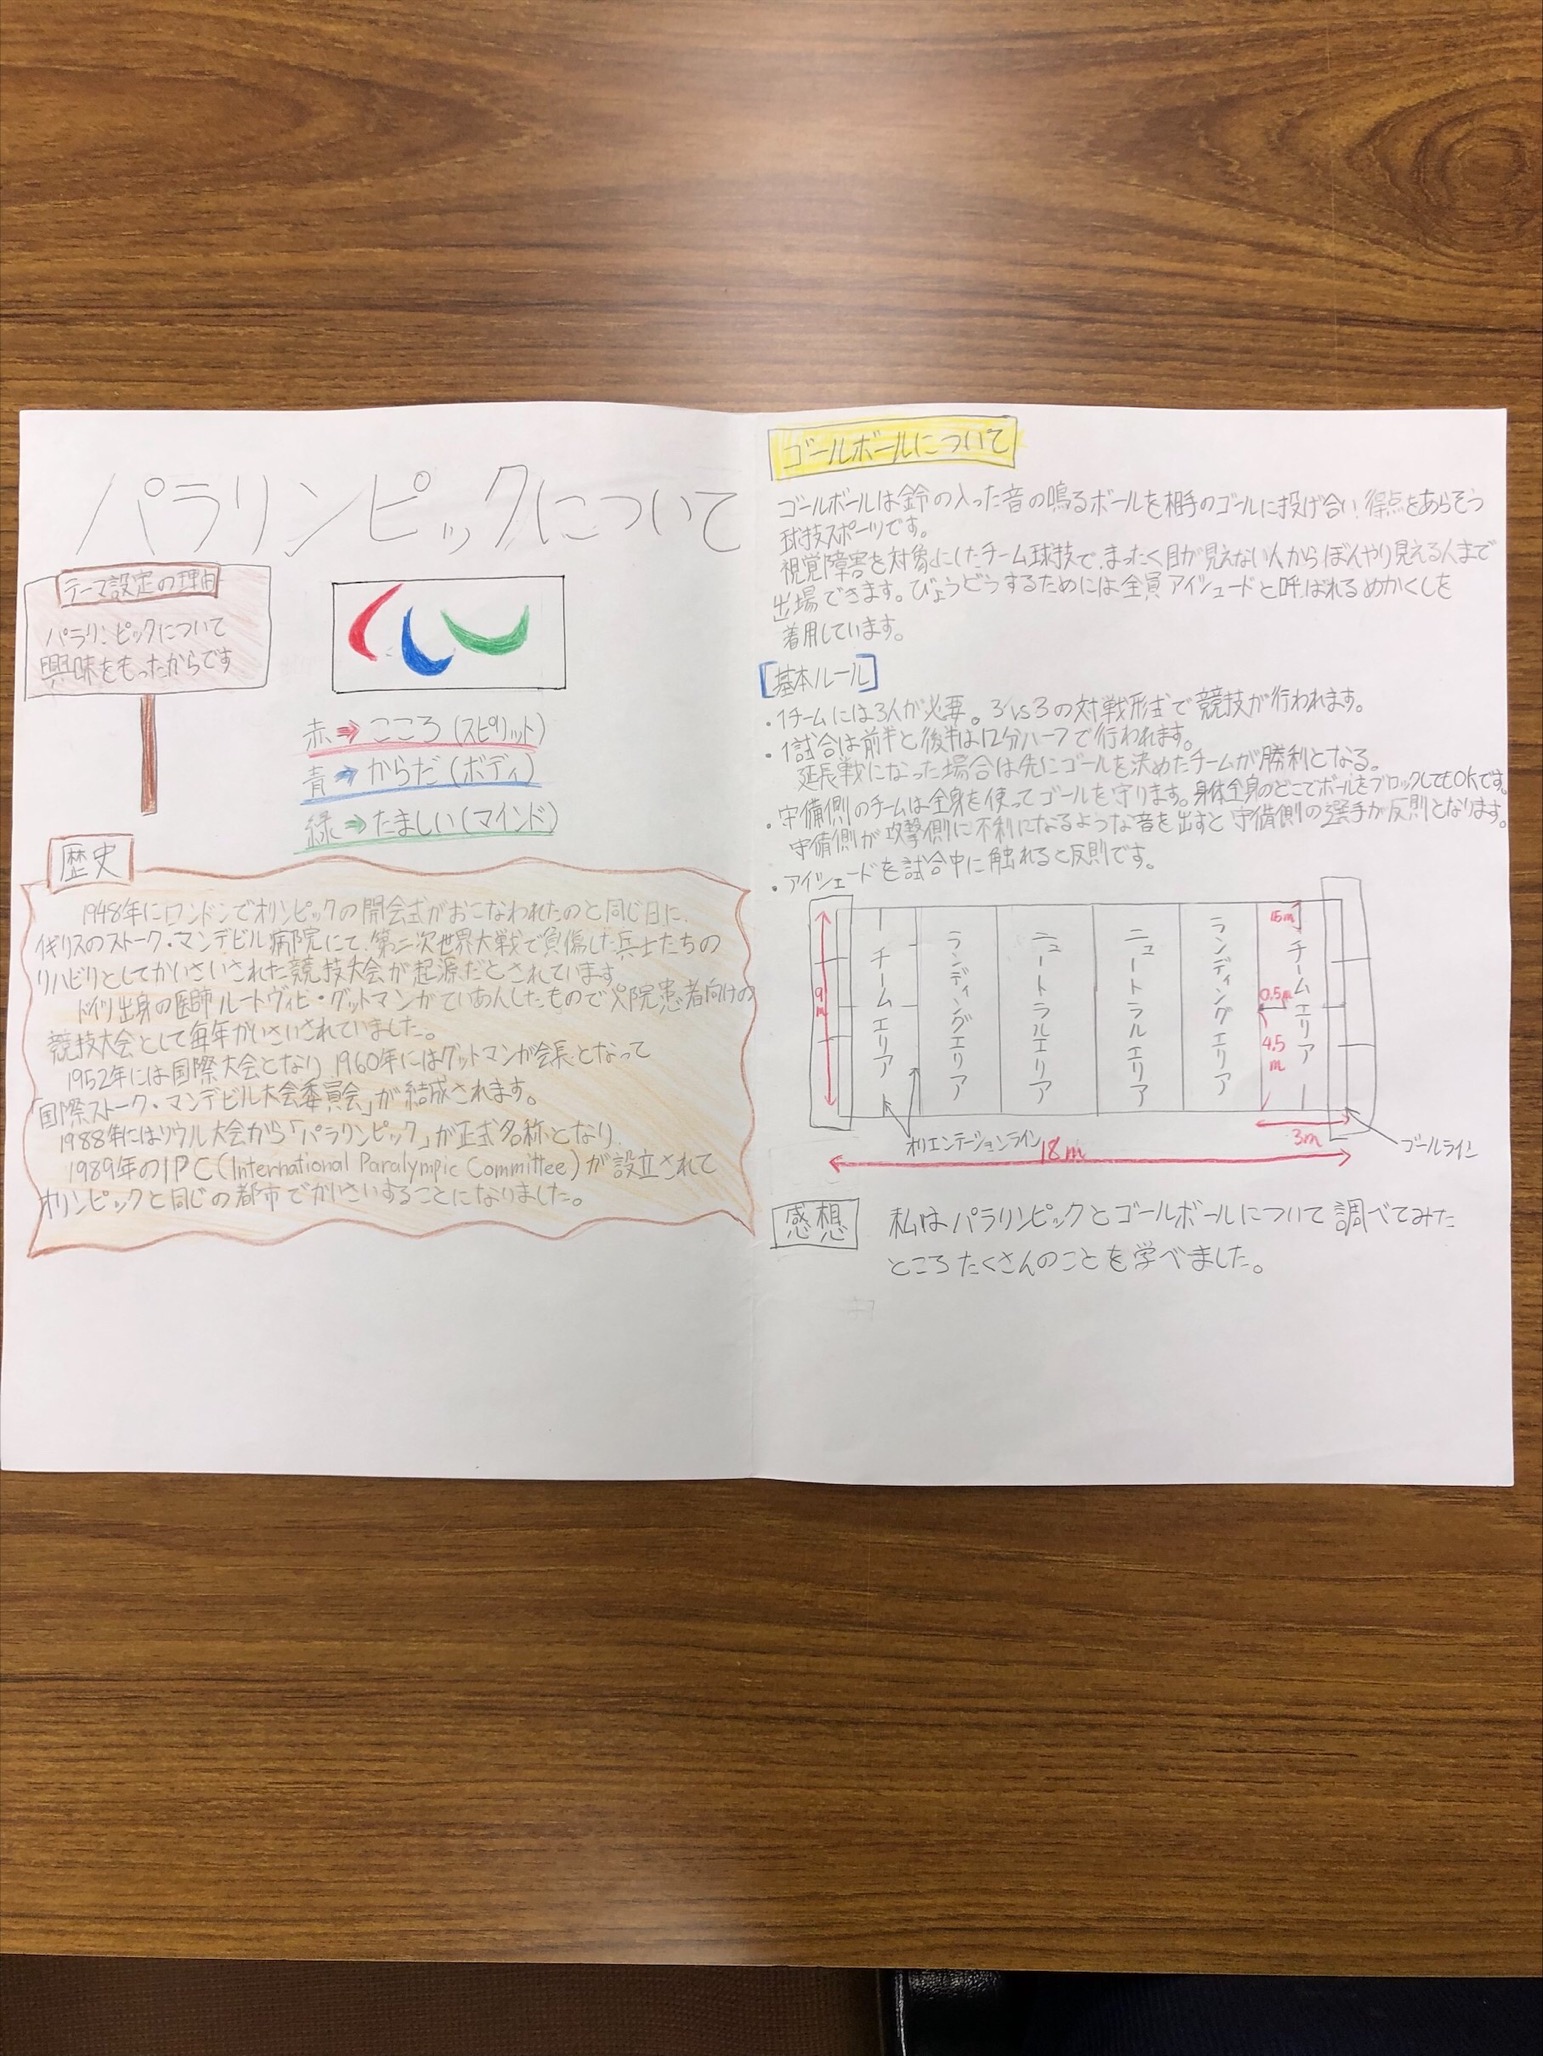 パラリンピックについて
テーマ設定の理由
パラリンピックについて
興味をもったからです
赤⇒こころ(スピリット)
青⇒からだ(ボディ)
緑⇒たましい(マインド)
歴史
1948年にロンドンでオリンピックの開会式がおこなわれたのと同じ日に、
イギリスのストーク・マンデビル病院にて、第二次世界大戦で負傷した兵士たちの
リハビリとしてかいさいされた競技大会が起源だとされています
ドイツ出身の医師ルートヴィヒ・グットマンがていあんしたもので入院患者向けの
競技大会として毎年かいさいされていました。
1952年には国際大会となり、1960年にはグットマンが会長となって
「国際ストーク・マンデビル大会委員会」が結成されます。
1988年にはソウル大会から「パラリンピック」が正式名称となり、
1989年のIPC(International Paralympic Committee)が設立されて
オリンピックと同じの都市でかいさいすることになりました。
ゴールボールについて
ゴールボールは鈴の入った音の鳴るボールを相手のゴールに投げ合い、得点をあらそう
球技スポーツです。
視覚障害を対象にしたチーム球技で、まったく目が見えない人からぼんやり見える人まで
出場できます。びょうどうするためには全員アイシェードと呼ばれるめかくしを
着用しています。
[基本ルール]
・1チームには3人が必要。3vs3の対戦形式で競技が行われます。
・1試合は前半と後半は12分ハーフで行われます。
延長戦になった場合は先にゴールを決めたチームが勝利となる。
・守備側のチームは全身を使ってゴールを守ります。身体全身のどこでボールをブロックしてもOKです。
守備側が攻撃側に不利になるような音を出すと守備側の選手が反則となります。
・アイシェードを試合中に触れると反則です。
9m
チームエリア
ランディングエリア
ニュートラルエリア
ニュートラルエリア
ランディングエリア
チームエリア
0.5m
4.5m
オリエンテーションライン
18m
3m
ゴールライン
感想
私はパラリンピックとゴールボールについて調べてみた
ところたくさんのことを学べました。